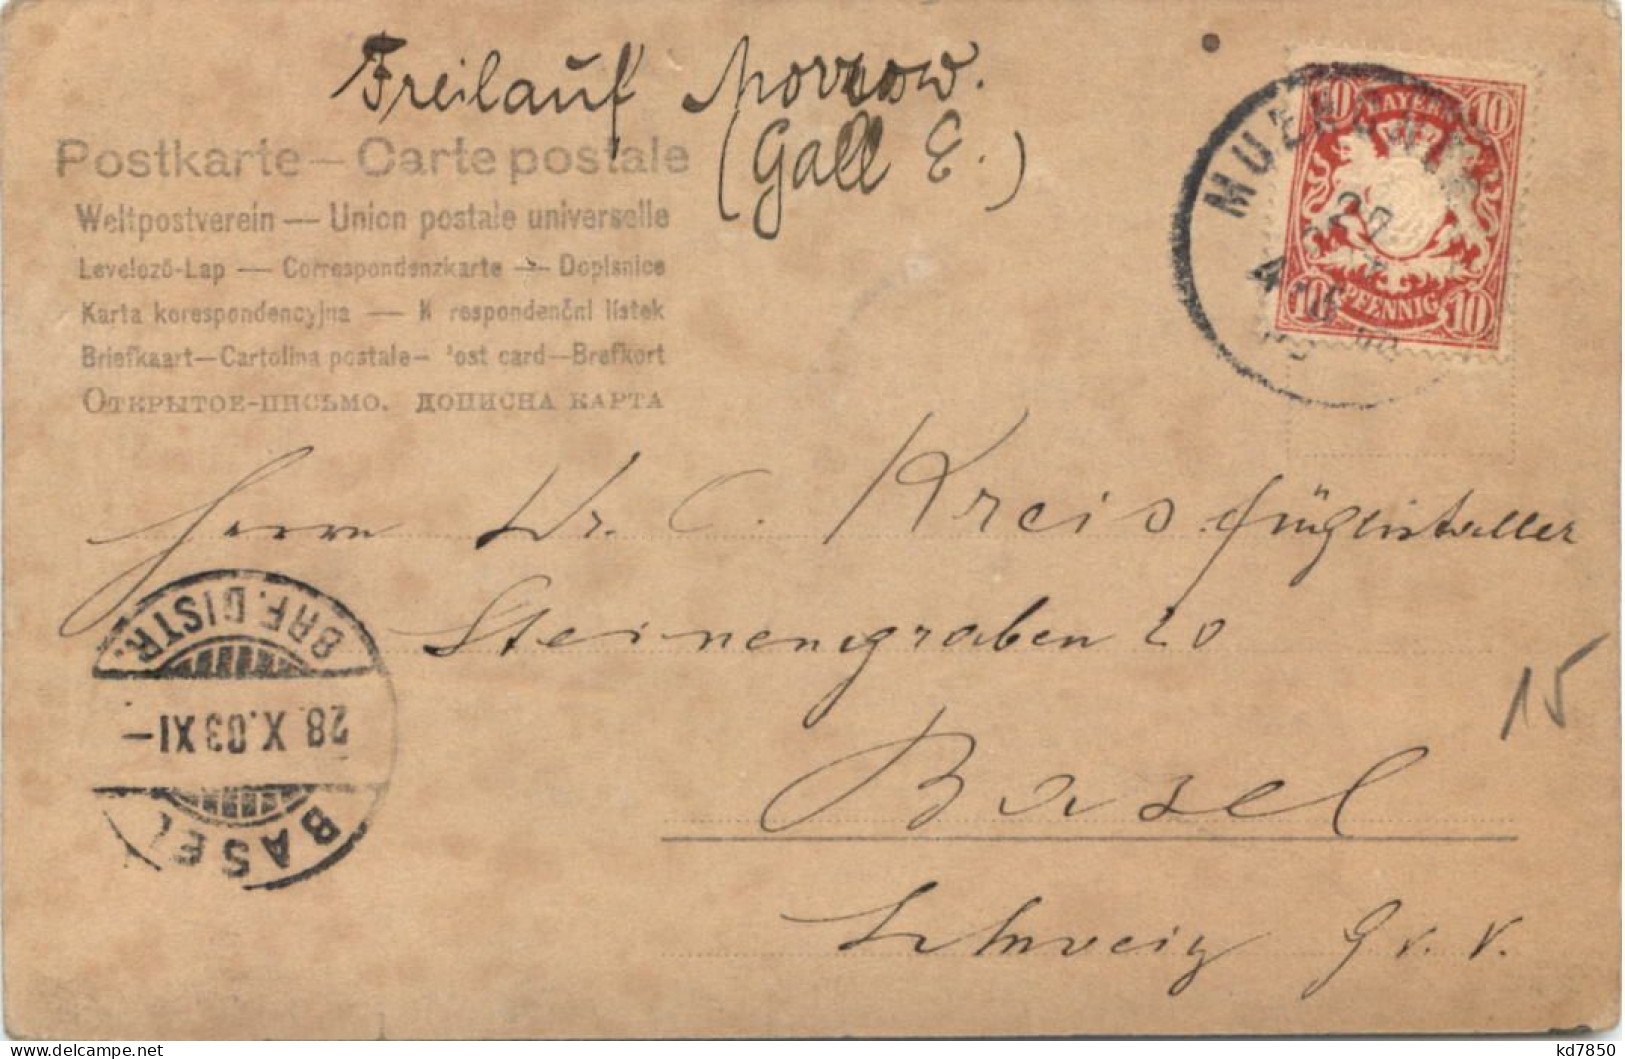 Freilauf
(Gall E.)
Postkarte — Carte postale
Weltpostverein — Union postale universelle
Levelező-Lap — Correspondenzkarte — Dopisnice
Karta korespondencyjna — K respondenční lístek
Briefkaart—Cartolina postale— ost card—Brefkort
ОТКРЫТОЕ-ПИСЬМО. ДОПИСНА КАРТА
10 BAYERN 10
10 PFENNIG 10
Herrn Dr. C. Kreis
Steinengraben 20
15
Basel
Schweiz
BRF. DISTR.
28.X.03 XI—
BASEL
delcampe.net
kd7850